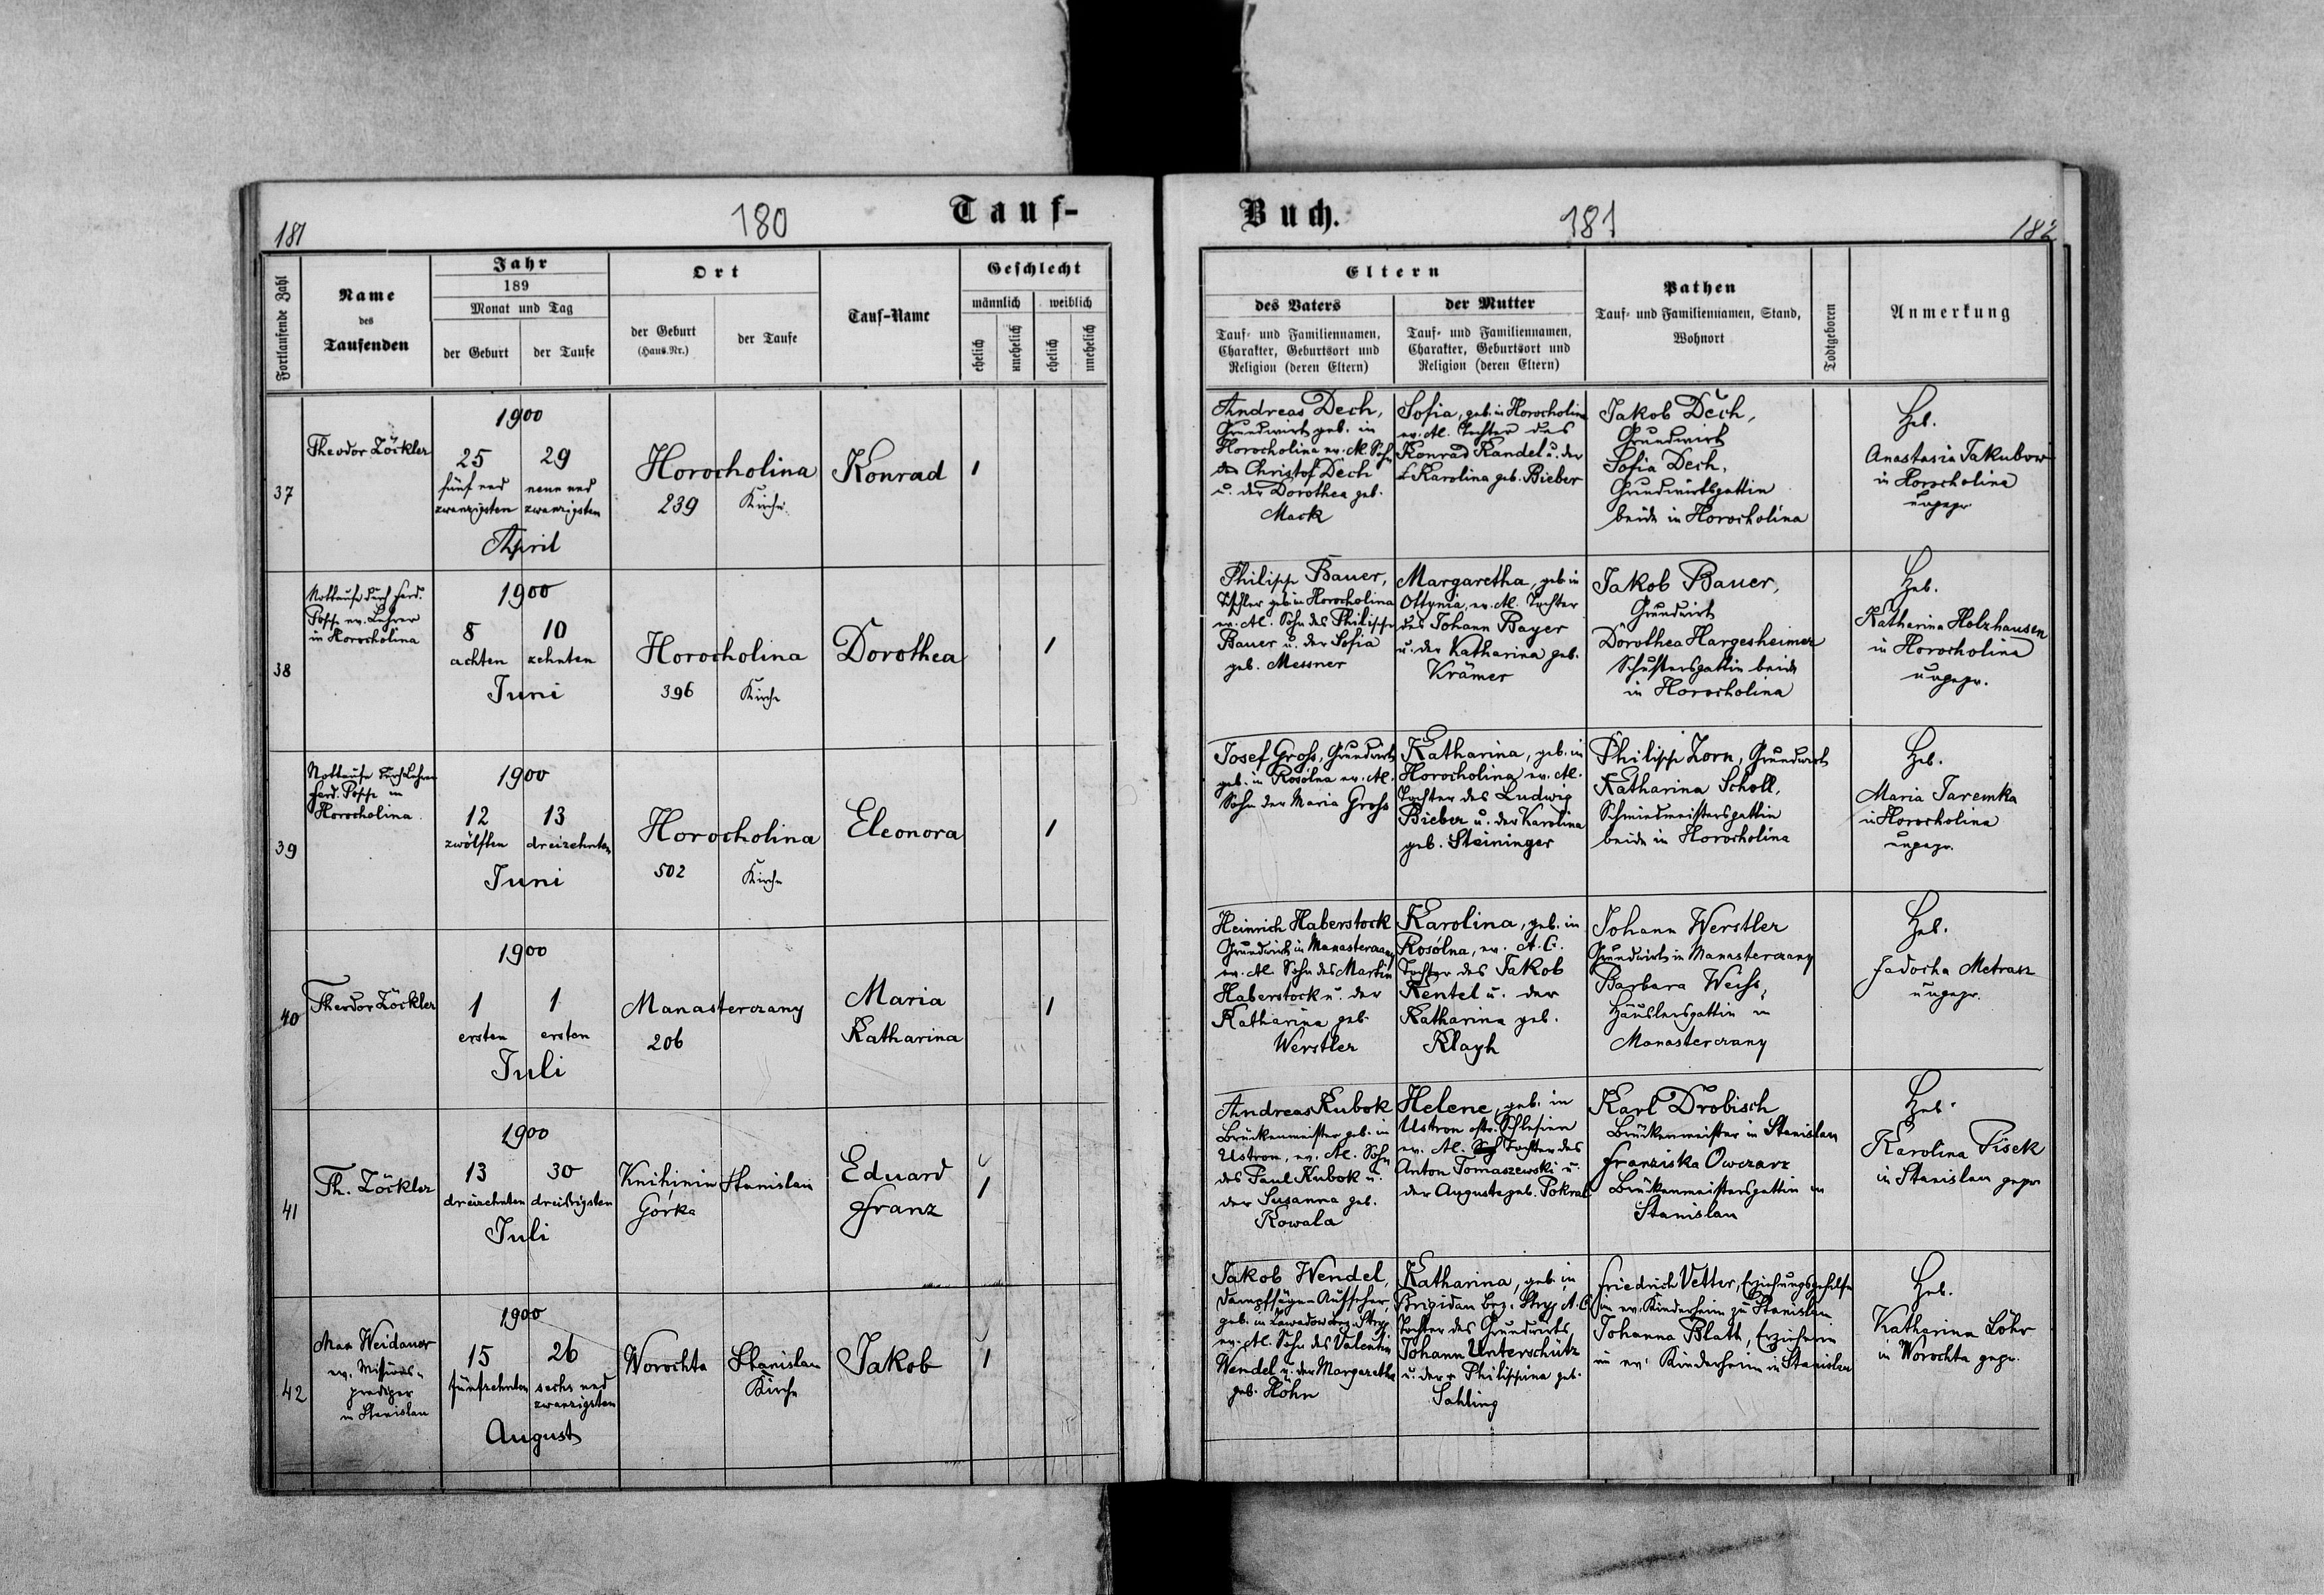 181
180
Tauf-
Fortlaufende Zahl
Name
des
Taufenden
Jahr
189
Monat und Tag
der Geburt
der Taufe
Ort
der Geburt
(Haus-Nr.)
der Taufe
Tauf-Name
Geschlecht
männlich
weiblich
ehelich
unehelich
ehelich
unehelich
37
Theodor Zöckler
1900
25
29
fünf und
zwanzigsten
neun und
zwanzigsten
April
Horocholina
239
Kirche
Konrad
1
38
Nottaufe durch Ferd.
Popp ev. Lehrer
in Horocholina
1900
8
10
achten
zehnten
Juni
Horocholina
396
Kirche
Dorothea
1
39
Nottaufe durch Lehrer
Ferd. Popp in
Horocholina
1900
12
13
zwölften
dreizehnten
Juni
Horocholina
502
Kirche
Eleonora
1
40
Theodor Zöckler
1900
1
1
ersten
ersten
Juli
Manasterczany
206
Maria
Katharina
1
41
Th. Zöckler
1900
13
30
dreizehnten
dreißigsten
Juli
Knihinin
Górka
Stanislau
Eduard
Franz
1
42
Max Weidauer
ev. Missions-
prediger
in Stanislau
1900
15
26
fünfzehnten
sechs und
zwanzigsten
August
Worochta
Stanislau
Kirche
Jakob
1
Buch.
181
182
Eltern
des Vaters
Tauf- und Familiennamen,
Charakter, Geburtsort und
Religion (deren Eltern)
der Mutter
Tauf- und Familiennamen,
Charakter, Geburtsort und
Religion (deren Eltern)
Pathen
Tauf- und Familiennamen, Stand,
Wohnort
Todtgeboren
Anmerkung
Andreas Dech,
Grundwirt geb. in
Horocholina ev. Al. Sohn
Christof Dech
u. der Dorothea geb.
Mack
Sofia, geb. in Horocholina
ev. Al. Tochter des
Konrad Kandel u. der
Karolina geb. Bieber
Jakob Dech,
Grundwirt
Sofia Dech,
Grundwirtsgattin
beide in Horocholina
Heb.
Anastasia Jakubow
in Horocholina
ungepr.
Philipp Bauer,
Tischler geb. in Horocholina
ev. Al. Sohn des Philipp
Bauer u. der Sofia
geb. Messner
Margaretha, geb. in
Ottynia, ev. Al. Tochter
des Johann Bayer
u. der Katharina geb.
Krämer
Jakob Bauer,
Grundwirt
Dorothea Hargesheimer
Schustersgattin beide
in Horocholina
Heb.
Katharina Holzhausen
in Horocholina
ungepr.
Josef Groß, Grundwirt
geb. in Rosólna ev. Al.
Sohn der Maria Groß
Katharina, geb. in
Horocholina ev. Al.
Tochter des Ludwig
Bieber u. der Karolina
geb. Steininger
Philipp Zorn, Grundwirt
Katharina Scholl,
Schmiedmeistersgattin
beide in Horocholina
Heb.
Maria Jaremka
in Horocholina
ungepr.
Heinrich Haberstock
Grundwirt in Manasterczany
ev. Al. Sohn des Martin
Haberstock u. der
Katharina geb.
Werstler
Karolina, geb. in
Rosólna, ev. A. C.
Tochter des Jakob
Kentel u. der
Katharina geb.
Klayh
Johann Werstler
Grundwirt in Manasterczany
Barbara Weiß,
Häuslersgattin in
Manasterczany
Heb.
Jadocha Metrasz
ungepr.
Andreas Kubok
Brückenmeister geb. in
Ustron, ev. Al. Sohn
des Paul Kubok u.
der Susanna geb.
Kowala
Helene, geb. in
Ustron östr. Schlesien
ev. Al. Tochter des
Anton Tomaszewski u.
der Auguste geb. Pokrat
Karl Drobisch
Brückenmeister in Stanislau
Franziska Owczarz
Brückenmeistersgattin in
Stanislau
Heb.
Karolina Pisek
in Stanislau gepr.
Jakob Wendel,
Dampfsäge-Aufseher,
geb. in Zawadow bez. Stryj
ev. Al. Sohn des Valentin
Wendel u. der Margaretha
geb. Höhn
Katharina, geb. in
Brigidau bez. Stryj A. C.
Tochter des Grundwirts
Johann Unterschütz
u. der Philippina geb.
Sahling
Friedrich Vetter, Erziehungsgehilfe
im ev. Kinderheim zu Stanislau
Johanna Blath, Erzieherin
im ev. Kinderheim in Stanislau
Heb.
Katharina Löhr
in Worochta gepr.